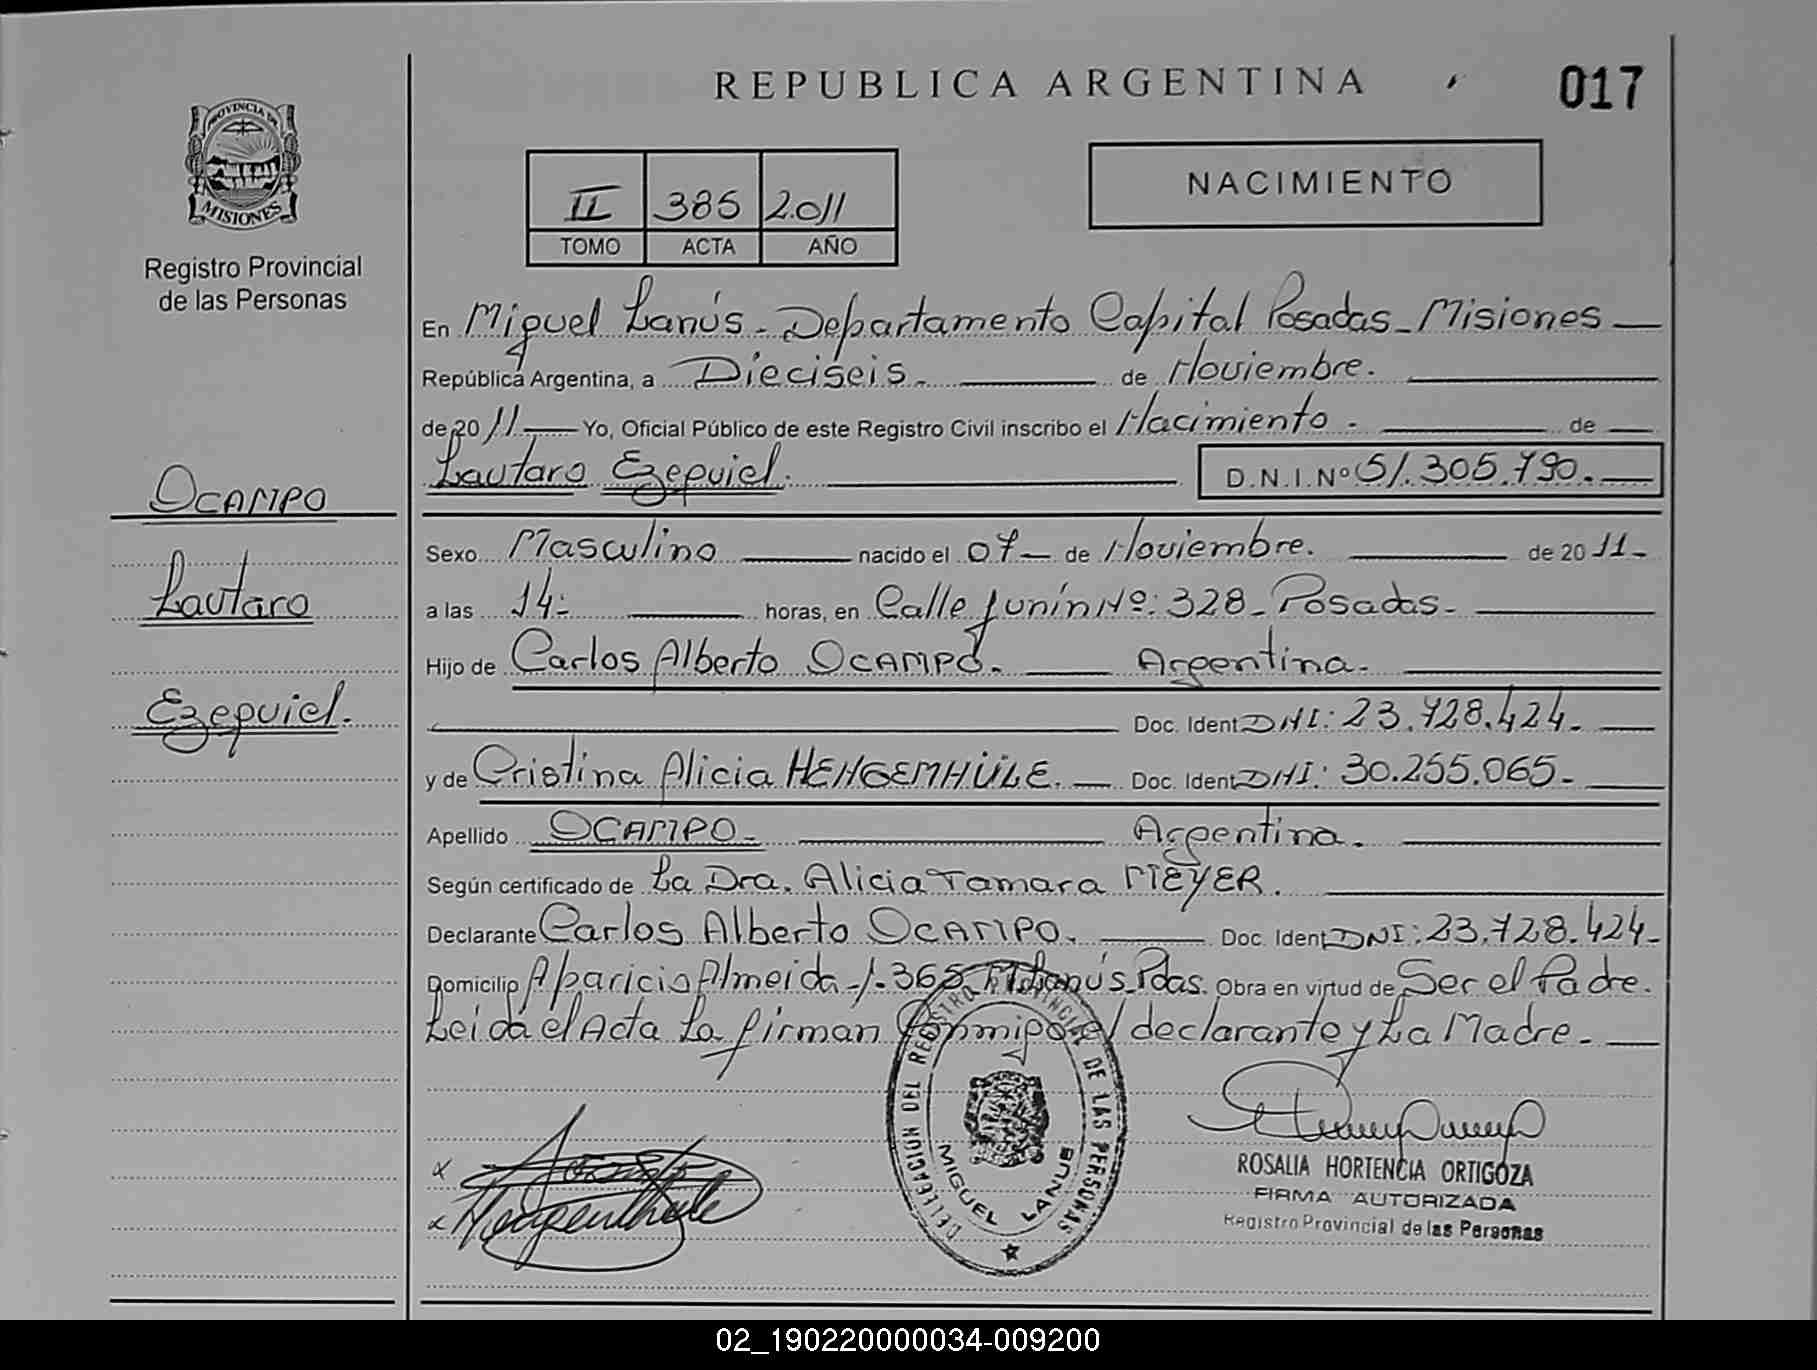 REPUBLICA ARGENTINA
017
PROVINCIA DE
MISIONES
Registro Provincial
de las Personas
II 385 2.011
TOMO ACTA AÑO
NACIMIENTO
En Miguel Lanús - Departamento Capital Posadas - Misiones
República Argentina, a Dieciseis. de Noviembre.
de 2011 Yo, Oficial Público de este Registro Civil inscribo el Nacimiento - de
Lautaro Ezequiel. D.N.I.Nº 51.305.790.
OCAMPO
Lautaro
Ezequiel.
Sexo Masculino nacido el 07 de Noviembre. de 2011-
a las 14: horas, en Calle Junín Nº: 328 - Posadas-
Hijo de Carlos Alberto OCAMPO. Argentina-
Doc. Ident DNI: 23.728.424-
y de Cristina Alicia HENGEMHÜLE. Doc. Ident DNI: 30.255.065-
Apellido OCAMPO- Argentina.
Según certificado de La Dra. Alicia Tamara MEYER.
Declarante Carlos Alberto OCAMPO. Doc. Ident DNI: 23.728.424-
Domicilio Aparicio Almeida -/- 365 M. Lanús - Pdas. Obra en virtud de Ser el Padre.
Leida el Acta La firman Conmigo el declarante y La Madre-
DELEGACION DEL REGISTRO PROVINCIAL DE LAS PERSONAS
MIGUEL LANUS
ROSALIA HORTENCIA ORTIGOZA
FIRMA AUTORIZADA
Registro Provincial de las Personas
02_190220000034-009200